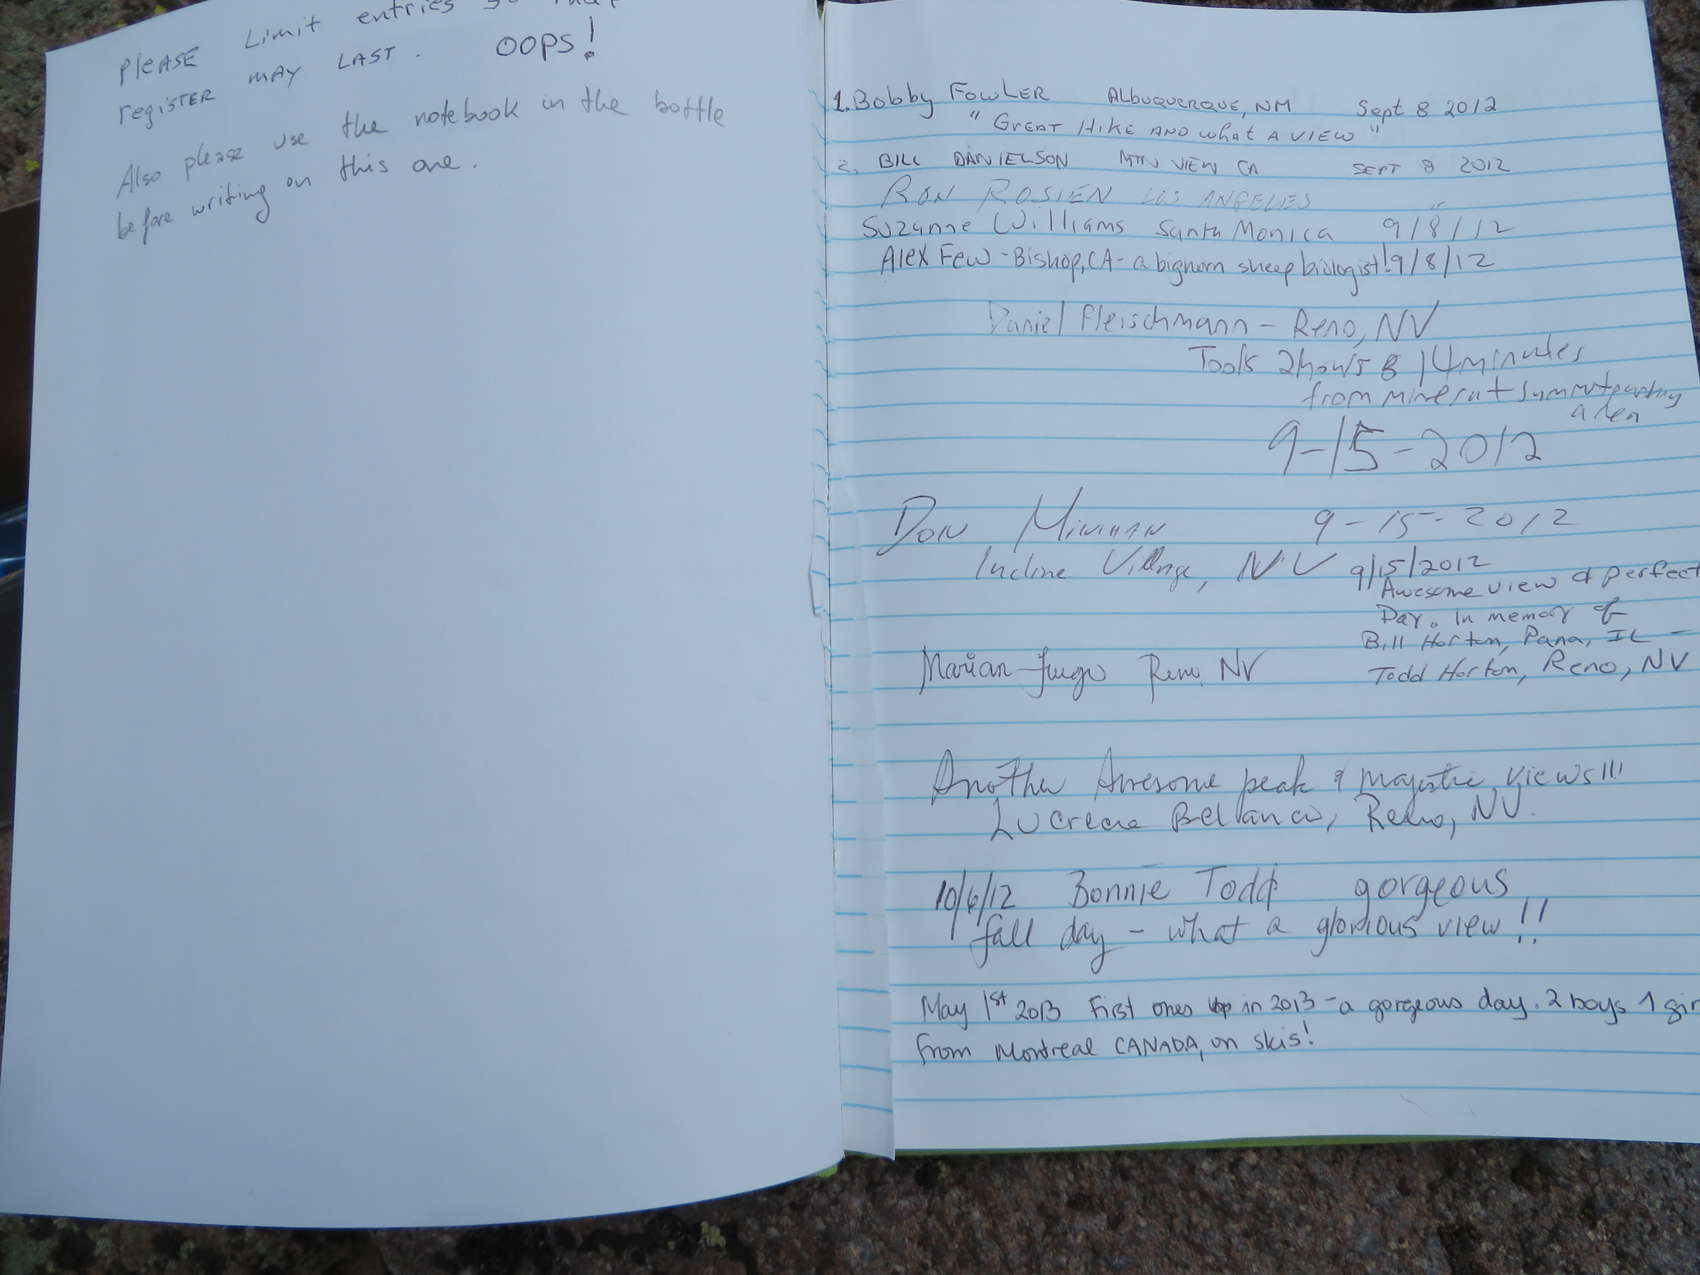 PleASE Limit entries so that
register may LAST. OOPS!
Also please use the notebook in the bottle
before writing on this one.
1. Bobby Fowler Albuquerque, NM Sept 8 2012
"Great Hike and what a view"
2. Bill Danielson Mtn View, CA Sept 8 2012
Ron Rosien Los Angeles "
Suzanne Williams Santa Monica 9/8/12
Alex Few - Bishop, CA - a bighorn sheep biologist! 9/8/12
Daniel Fleischmann - Reno, NV
Took 2 hours & 14 minutes
from Minerat Summit parking
area
9-15-2012
Don 9-15-2012
Incline Village, NV
9/15/2012
Awesome view & perfect
Day. In memory of
Bill Horton, Pana, IL -
Todd Horton, Reno, NV
Marian Reno, NV
Another Awesome peak & majestic views!!!
Reno, NV.
10/6/12 Bonnie Todd gorgeous
fall day - what a glorious view!!
May 1st 2013 First ones up in 2013 - a gorgeous day. 2 boys 1 gir
from Montreal CANADA, on skis!